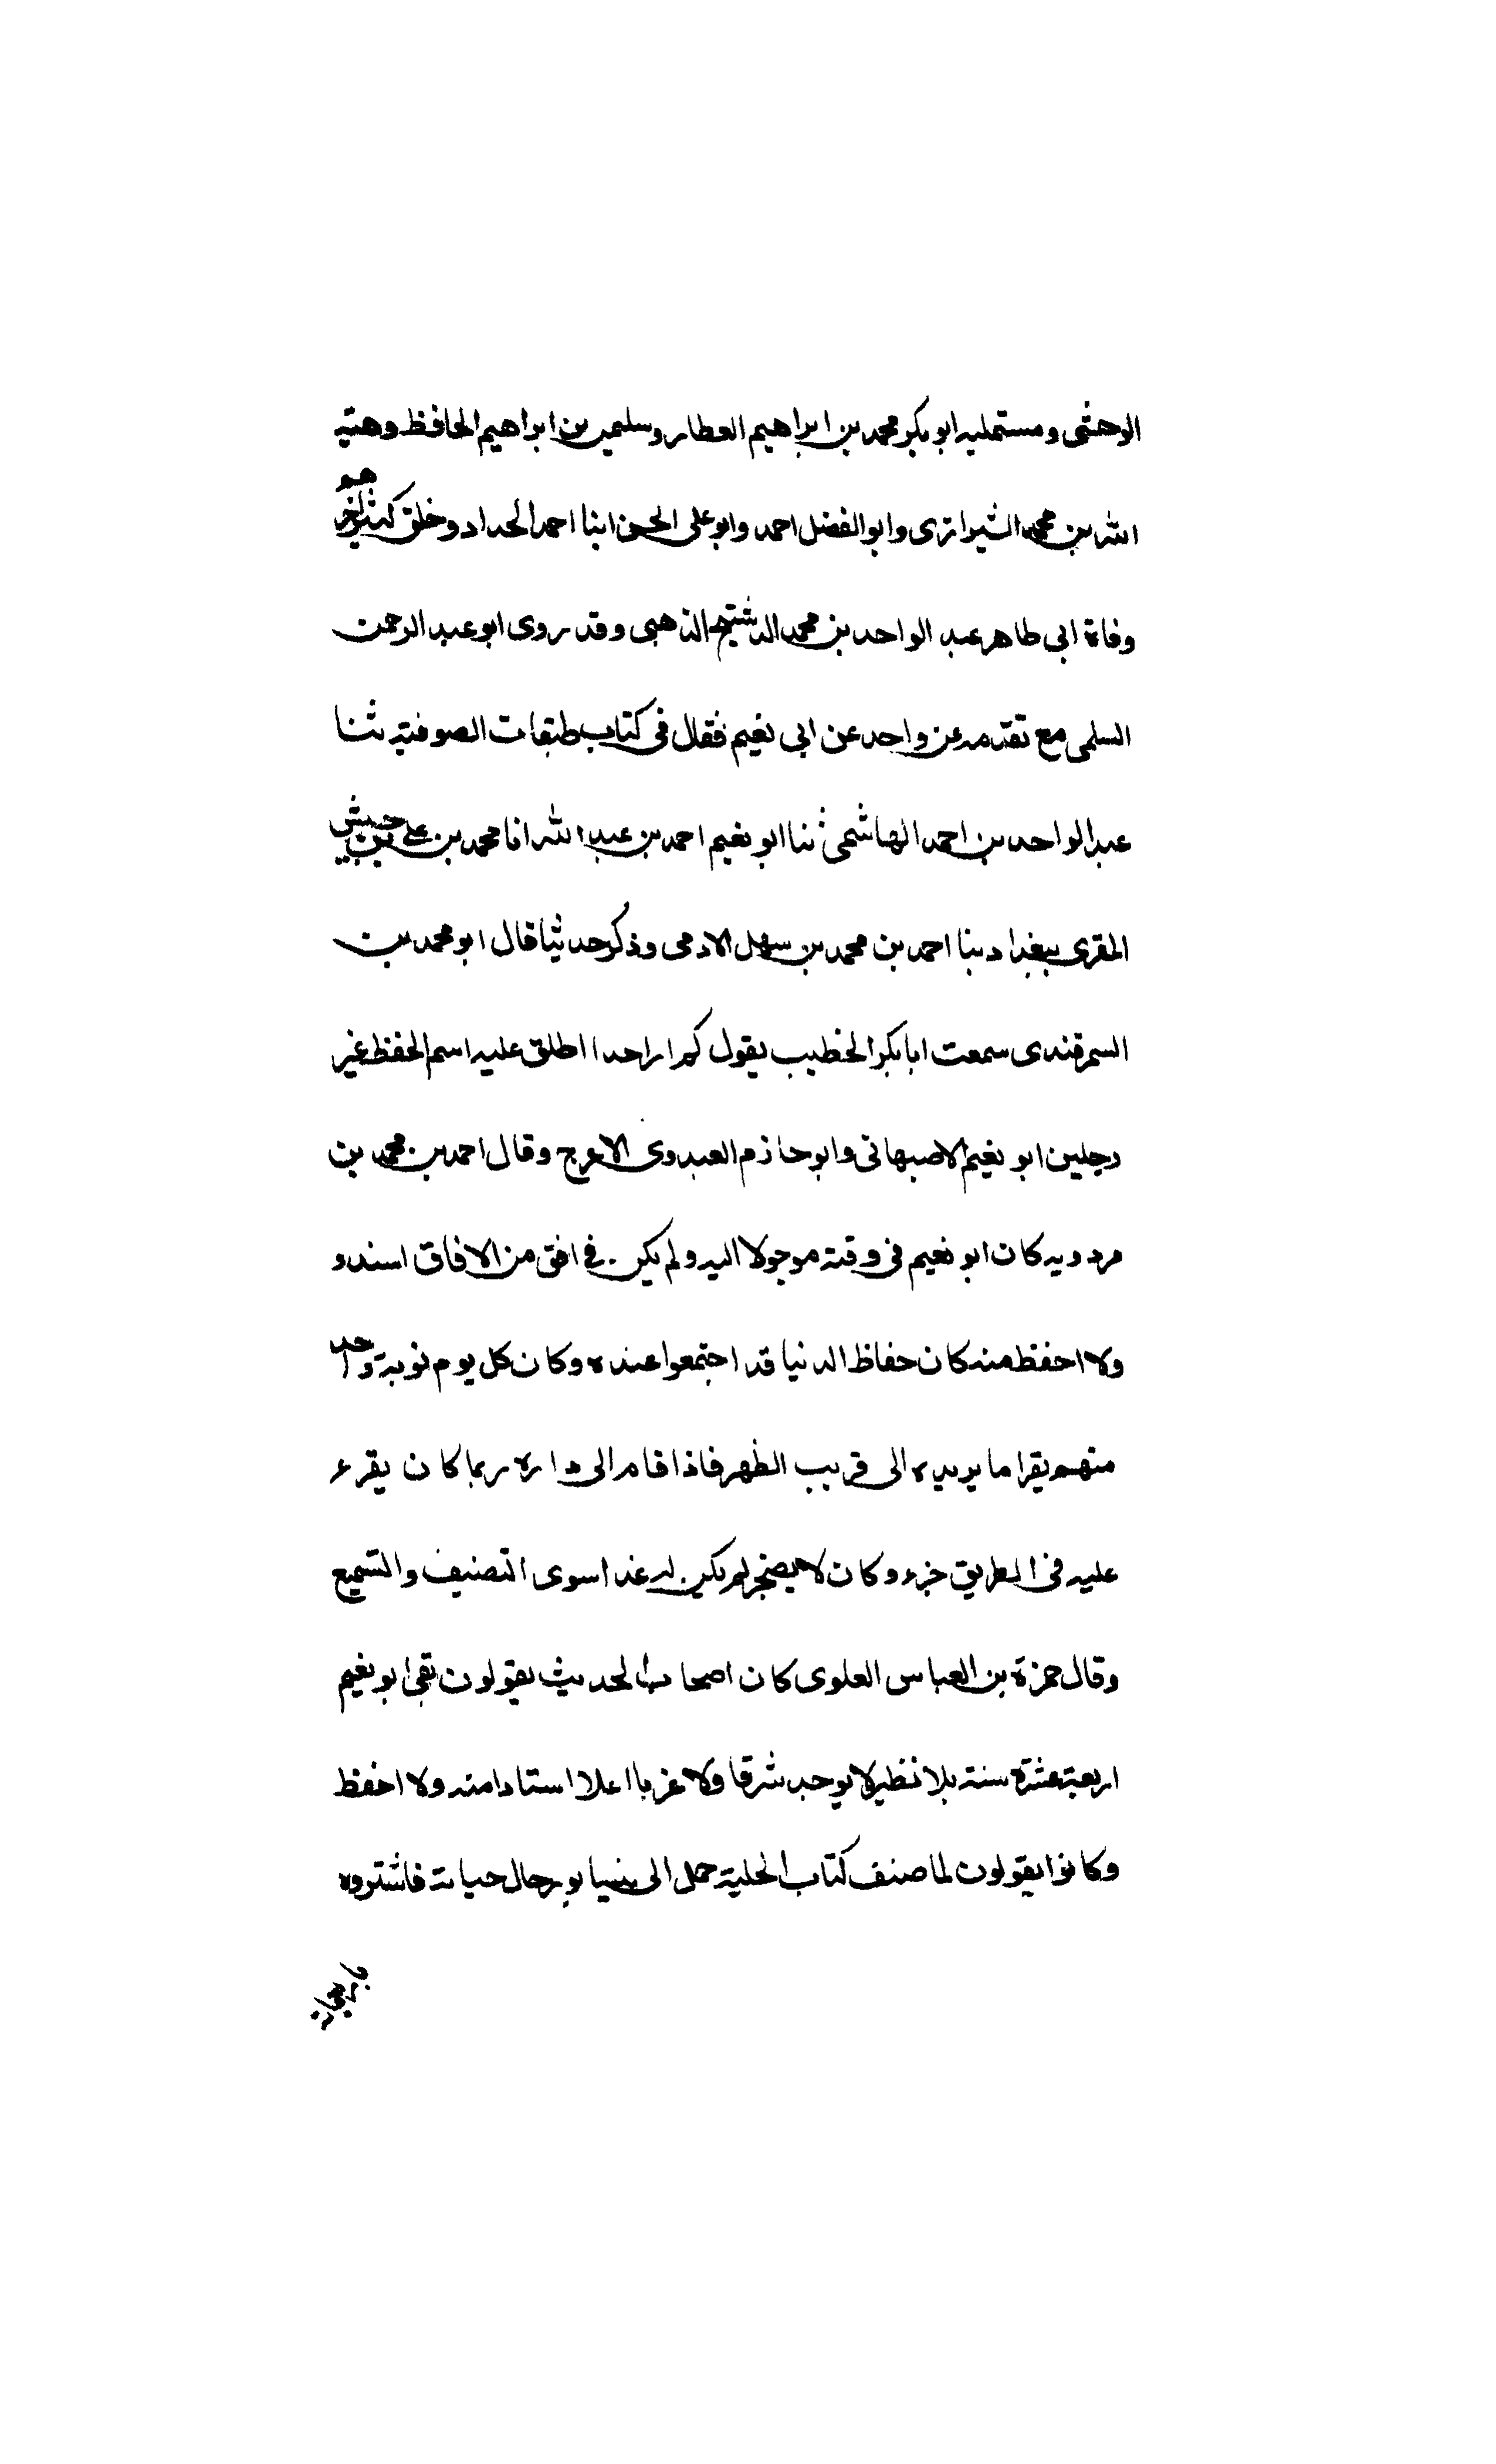 الوخشى ومستمليه ابو بكر محمد بن ابراهيم العطار وسليمن بن ابراهيم الحافظ وهبة
الله بن محمد الشيرازى وابو الفضل احمد وابو على الحسن ابنا احمد الحداد وخلق كثير اخرهم
وفاة ابى طاهر عبد الواحد بن محمد الدشتيج الذهبى وقد روى ابو عبد الرحمن
السلمى مع تقدمه عن واحد عن ابى نعيم فقال فى كتاب طبقات الصوفية ثنا
عبد الواحد بن احمد الهاشمى ثنا ابو نعيم احمد بن عبد الله انا محمد بن على بن حبيش
المقرى ببغداد بنا احمد بن محمد بن سهل الادمى وذكر حديثا قال ابو محمد بن
السمرقندى سمعت ابا بكر الخطيب يقول لم ار احدا اطلق عليه اسم الحفظ غير
رجلين ابو نعيم الاصبهانى وابو حازم العبدوى الاعرج وقال احمد بن محمد بن
مردويه كان ابو نعيم فى وقته موجولا اليه ولم يكن فى افق من الافاق اسند و
ولا احفظ منه كان حفاظ الدنيا قد اجتمعوا عنده وكان كل يوم نوبة واحد
منهم يقرا ما يريده الى قريب الظهر فاذا قام الى داره ربما كان يقرء
عليه فى الطريق جزء وكان لا يضجر لم يكن له غذا سوى التصنيف والتسميع
وقال حمزة بن العباس العلوى كان اصحاب الحديث يقولون بقى ابو نعيم
اربعة عشرة سنة بلا نظير لا يوجد شرقا ولا غربا اعلا اسنادا منه ولا احفظ
وكانوا يقولون لما صنف كتاب الحلية حمل الى نيسابور حال حياته فاشتروه